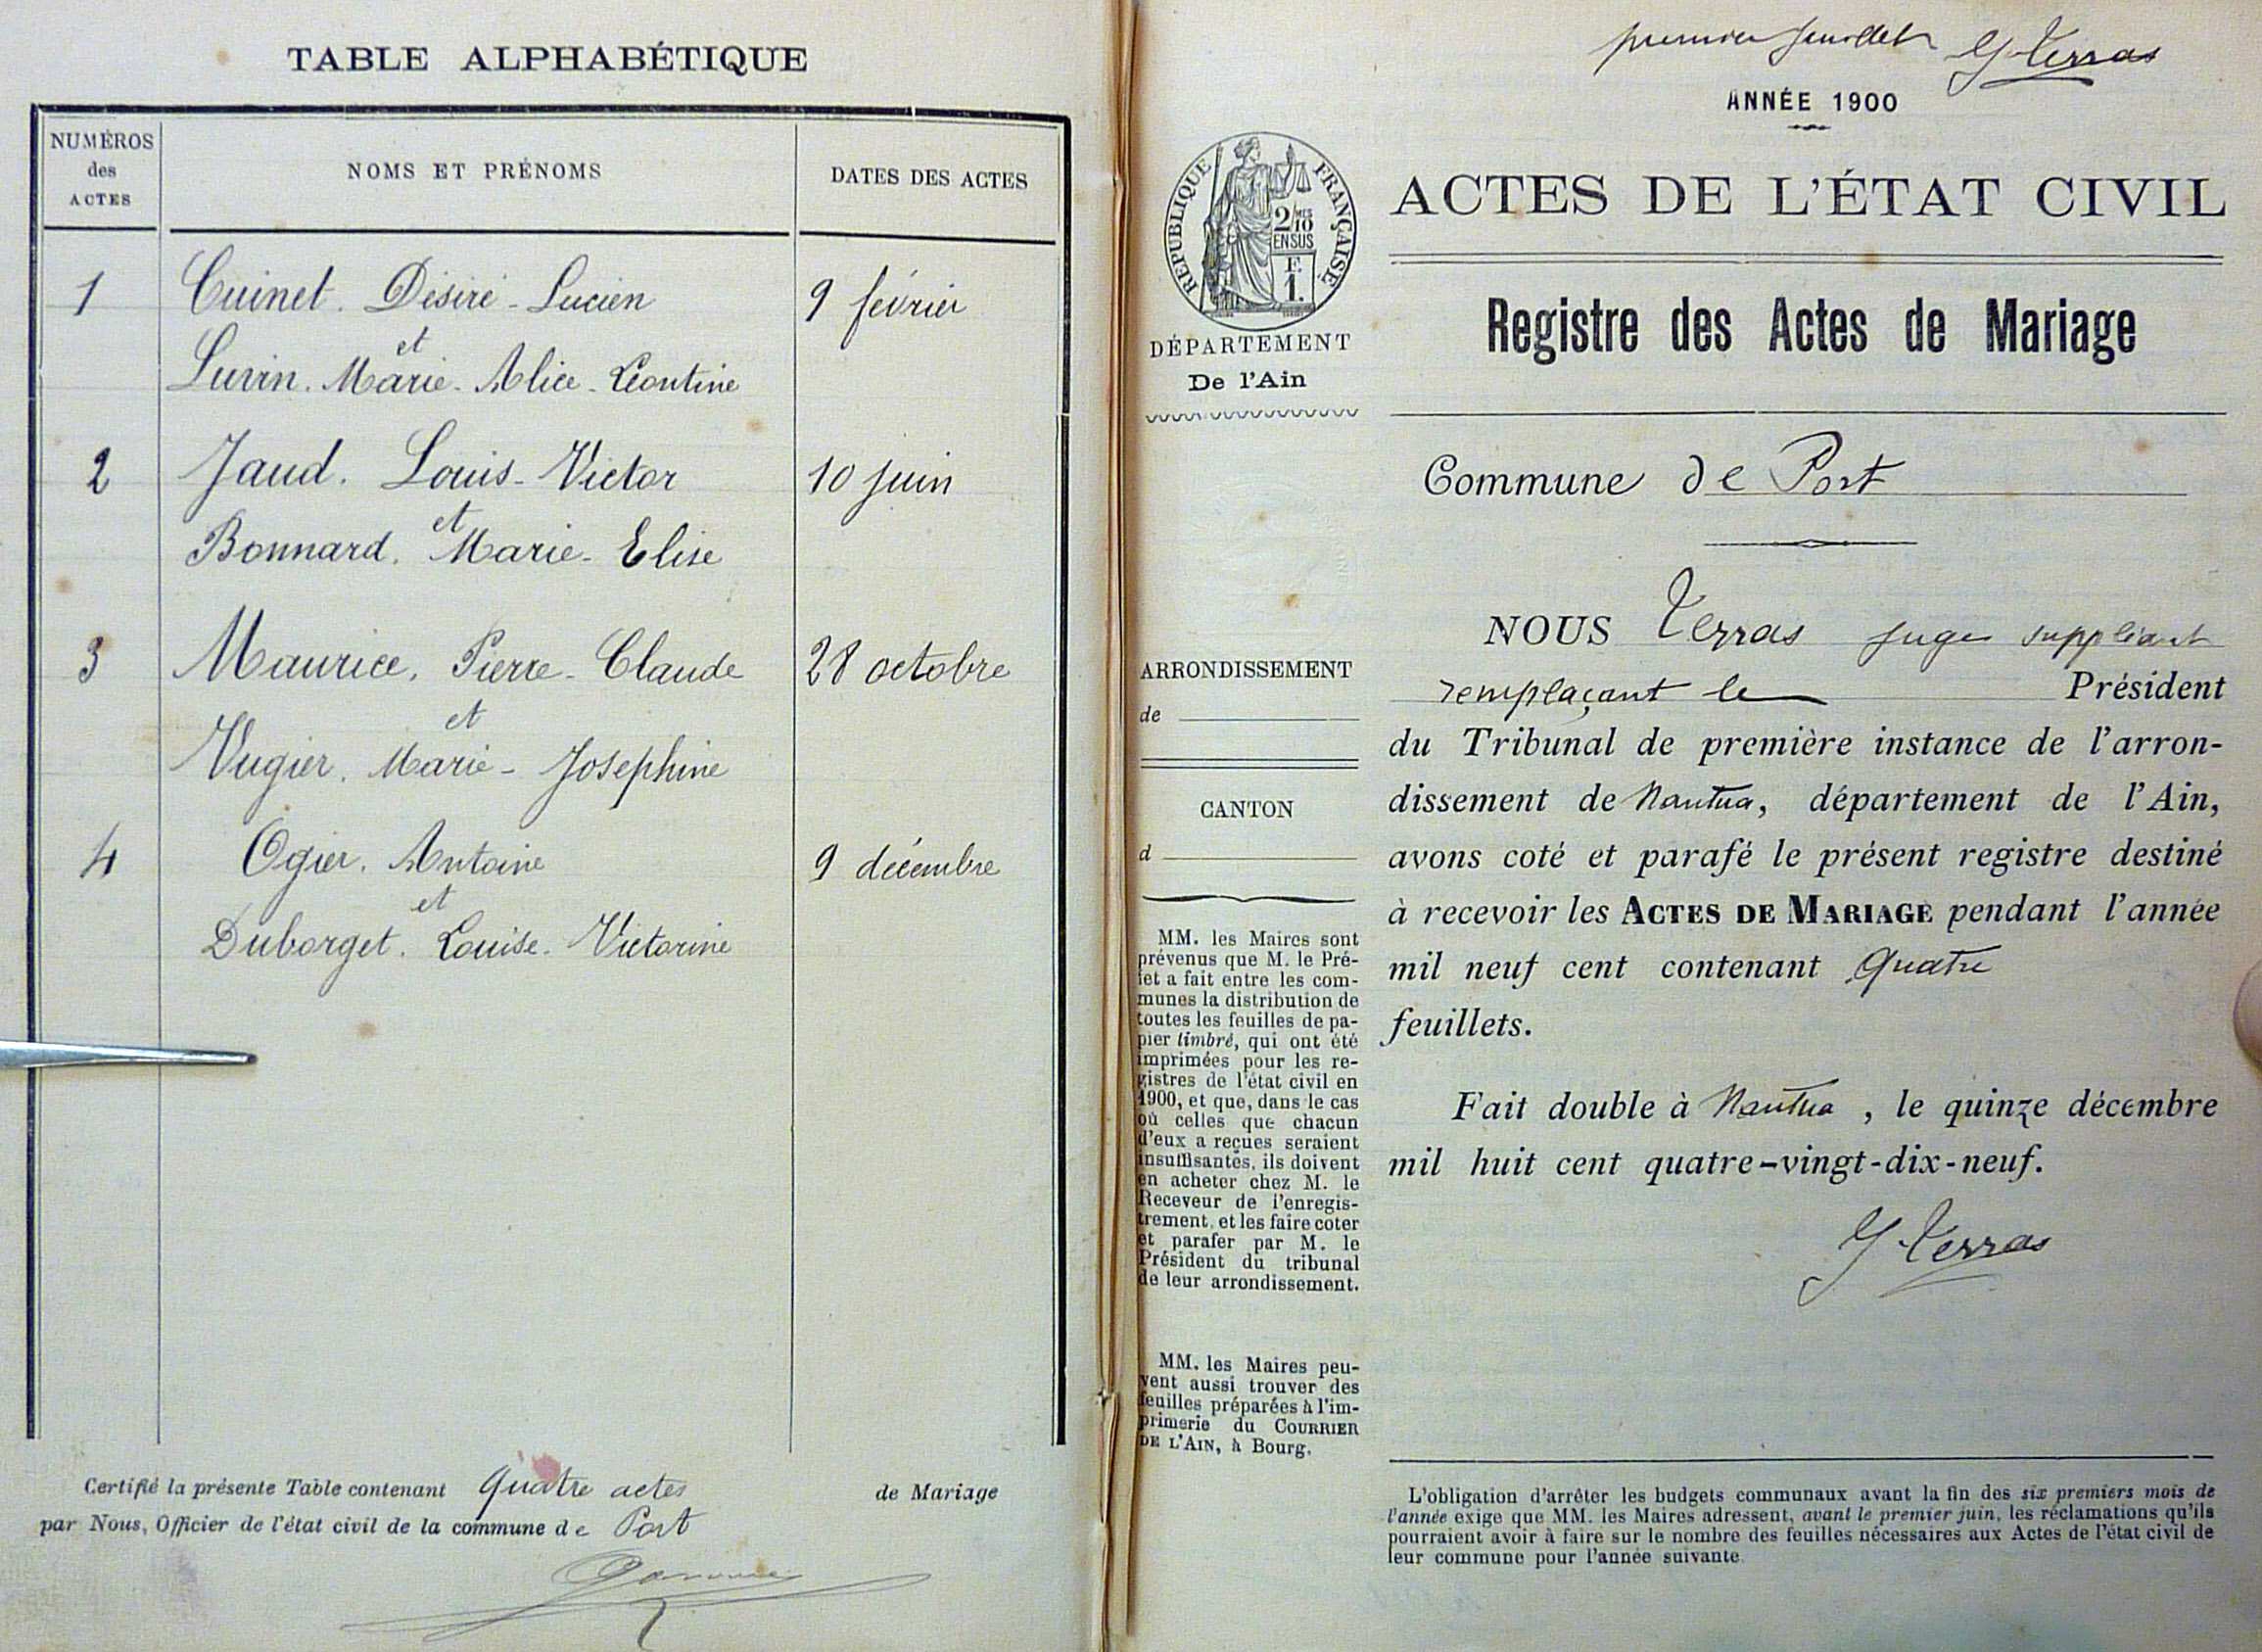 TABLE ALPHABÉTIQUE
NUMÉROS
des
ACTES
NOMS ET PRÉNOMS
DATES DES ACTES
1 Cuinet. Désiré-Lucien 9 février
et
Luvin. Marie-Alice-Léontine
2 Jaud. Louis-Victor 10 juin
et
Bonnard. Marie-Elise
3 Maurice. Pierre-Claude 28 octobre
et
Vugier. Marie-Josephine
4 Ogier. Antoine 9 décembre
et
Duborget. Louise-Victorine
Certifié la présente Table contenant quatre actes de Mariage
par Nous, Officier de l'état civil de la commune de Port
premier feuillet G Terras
ANNÉE 1900
RÉPUBLIQUE FRANÇAISE
2/10 MES
EN SUS
F.
1.
DÉPARTEMENT
De l'Ain
ARRONDISSEMENT
de
CANTON
d
MM. les Maires sont
prévenus que M. le Pré-
fet a fait entre les com-
munes la distribution de
toutes les feuilles de pa-
pier timbré, qui ont été
imprimées pour les re-
gistres de l'état civil en
1900, et que, dans le cas
où celles que chacun
d'eux a reçues seraient
insuffisantes, ils doivent
en acheter chez M. le
Receveur de l'enregis-
trement, et les faire coter
et parafer par M. le
Président du tribunal
de leur arrondissement.
MM. les Maires peu-
vent aussi trouver des
feuilles préparées à l'im-
primerie du COURRIER
DE L'AIN, à Bourg.
ACTES DE L'ÉTAT CIVIL
Registre des Actes de Mariage
Commune de Port
NOUS Terras juge suppléant
remplaçant le Président
du Tribunal de première instance de l'arron-
dissement de Nantua, département de l'Ain,
avons coté et parafé le présent registre destiné
à recevoir les ACTES DE MARIAGE pendant l'année
mil neuf cent contenant quatre
feuillets.
Fait double à Nantua, le quinze décembre
mil huit cent quatre-vingt-dix-neuf.
G Terras
L'obligation d'arrêter les budgets communaux avant la fin des six premiers mois de
l'année exige que MM. les Maires adressent, avant le premier juin, les réclamations qu'ils
pourraient avoir à faire sur le nombre des feuilles nécessaires aux Actes de l'état civil de
leur commune pour l'année suivante.